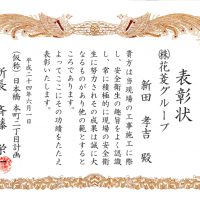 表彰状
㈱花菱グループ
新田 孝吉 殿
貴方は当現場の工事施工に際
し、安全衛生の趣旨をよく認識
し、常に積極的に現場の安全衛
生に努力されその成果は誠に大
なるものがあり他の範とすると
ころであります。
よってここにその功績をたたえ
表彰いたします。
平成二十四年六月一日
(仮称)日本橋本町二丁目計画
所長 斉藤